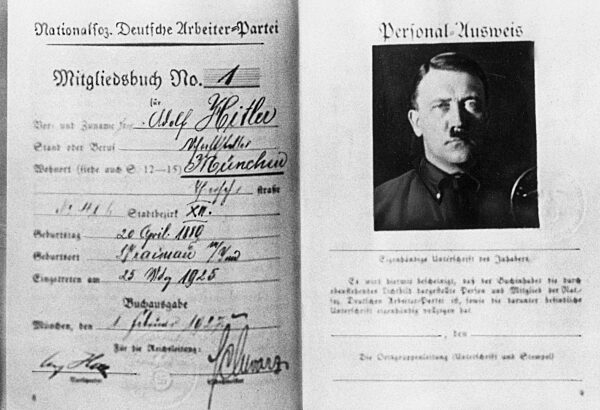 Nationalsoz. Deutsche Arbeiter-Partei
Mitgliedsbuch No. 1
für
Vor- und Zuname Adolf Hitler
Stand oder Beruf Schriftsteller
Wohnort (siehe auch S. 12-15) München
straße
No 41 Stadtbezirk XII.
Geburtstag 20 April. 1889
Geburtsort Braunau
Eingetreten am 1925
Buchausgabe
München, den 1
Für die Reichsleitung:
Schwarz
6
Personal-Ausweis
Eigenhändige Unterschrift des Inhabers.
Es wird hierdurch bescheinigt, daß der Buchinhaber die durch
obenstehendes Lichtbild dargestellte Person und Mitglied der Nat.-
soz. Deutschen Arbeiter-Partei ist, sowie die darunter befindliche
Unterschrift eigenhändig vollzogen hat.
, den
Die Ortsgruppenleitung (Unterschrift und Stempel)